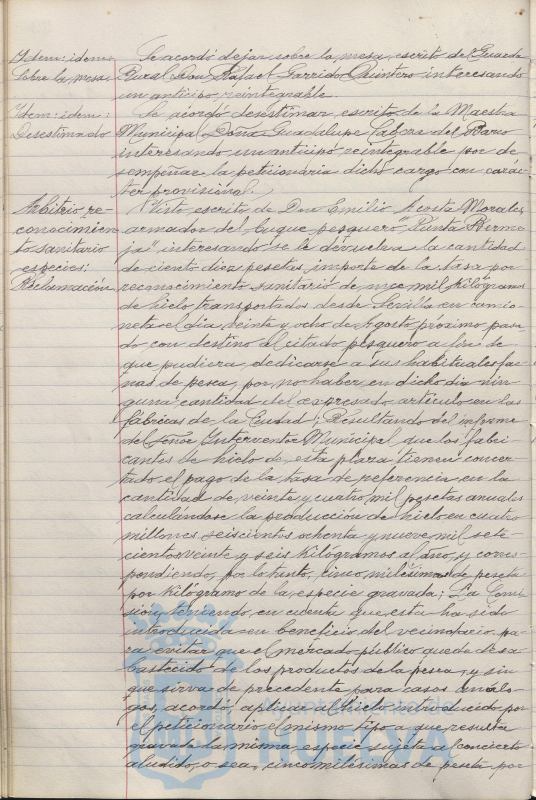 Idem: idem:
Sobre la mesa.
Se acordó dejar sobre la mesa, escrito del Guarda
Rural Don Rafael Garrido Quintero interesando
un anticipo reintegrable.
Idem: idem:
Desestimado
Se acordó desestimar escrito de la Maestra
Municipal Doña Guadalupe del
interesando un anticipo reintegrable por de-
sempeñar la peticionaria dicho cargo con carác-
ter provisional.
Arbitrio re-
conocimien-
to sanitario
especies:
Reclamación
Visto escrito de Don Emilio Acosta Morales,
armador del buque pesquero "Punta Berme-
ja" interesando se le devuelva la cantidad
de ciento diez pesetas, importe de la tasa por
reconocimiento sanitario de once mil kilógramos
de hielo transportados desde Sevilla en camio-
neta el día veinte y ocho de Agosto próximo pasa-
do con destino al citado pesquero a fin de
que pudiera dedicarse a sus habituales fae-
nas de pesca, por no haber en dicho día nin-
guna cantidad del expresado artículo en las
fábricas de la Ciudad; Resultando del informe
del Señor Interventor Municipal que los fabri-
cantes de hielo de esta plaza tienen concer-
tado el pago de la tasa de referencia en la
cantidad de veinte y cuatro mil pesetas anuales
calculándose la producción de hielo en cuatro
millones, seiscientos ochenta y nueve mil sete-
cientos veinte y seis kilógramos al año, y corres-
pondiendo, por lo tanto, cinco milésimas de peseta
por kilógramo de la especie gravada; La Comi-
sión, teniendo en cuenta que esta ha sido
introducida en beneficio del vecindario pa-
ra evitar que el mercado público quede desa-
bastecido de los productos de la pesca, y sin
que sirva de precedente para casos análo-
gos, acordó aplicar al hielo introducido por
el peticionario el mismo tipo a que resulta
gravada la misma especie sujeta al concierto
aludido, o sea, cinco milésimas de peseta por
HUELVA